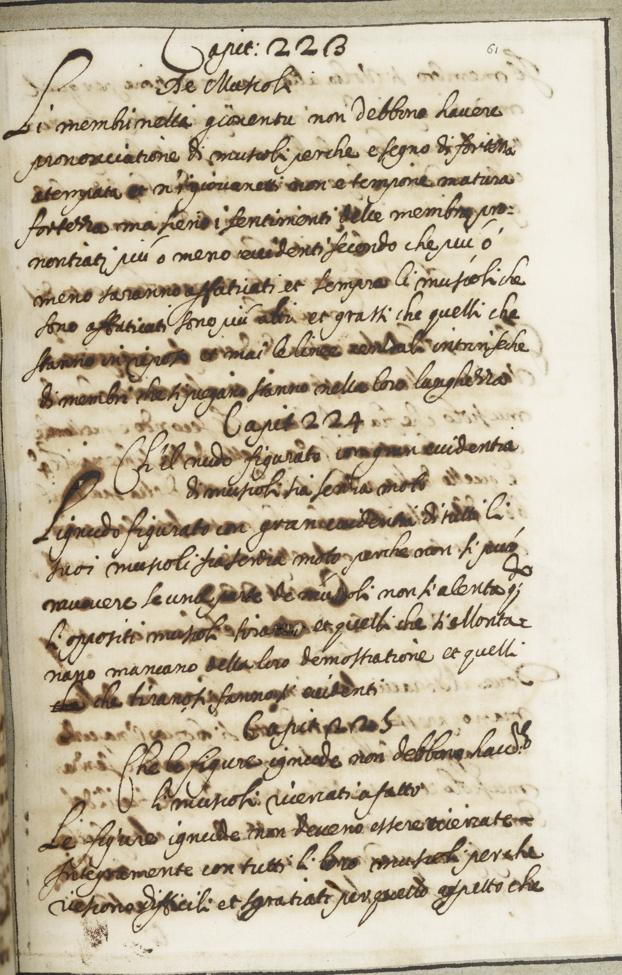 61
Capit: 223
De Muscoli
Li membri nella gioventu non debbono havere
pronontiatione di muscoli perche e segno di fortezza
atempata et n i giovanetti non e tempo ne matura
fortezza ma sieno i sentimenti delle membra pro=
nontiati più o meno evidenti secondo che più ó
meno saranno affatigati et sempre li muscoli che
sono affaticati sono più alti et grossi che quelli che
stanno in riposo et mai le linee centrali intrinseche
di membri che si piegano stanno nella loro lunghezza
Capit 224
Ch'el nudo figurato con gran evidentia
di muscoli sia senza moto
L ignudo figurato con gran evidentia di tutti li
suoi muscoli sia senza moto perche non si può
muovere se una parte de muscoli non si alenta q̃do
li oppositi muscoli tirano et quelli che s'allonta=
nano mancano della loro demostratione et quelli
che tiranosi fannosi evidenti
Capit 225
Che le figure ignude non debbono haver
li muscoli ricercati afatto
Le figure ignude non deveno essere ricercate
integramente con tutti li loro muscoli perche
riescono difficili et sgratiati per quello aspetto che